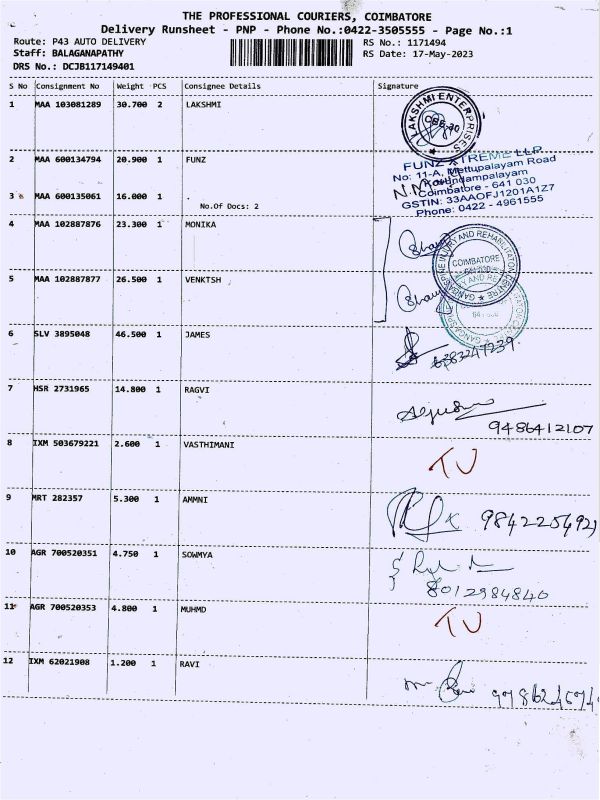 THE PROFESSIONAL COURIERS, COIMBATORE
Delivery Runsheet - PNP - Phone No.:0422-3505555 - Page No.:1
Route: P43 AUTO DELIVERY RS No.: 1171494
Staff: BALAGANAPATHY RS Date: 17-May-2023
DRS No.: DCJB117149401
S No Consignment No Weight PCS Consignee Details Signature
1 MAA 103081289 30.700 2 LAKSHMI
LAKSHMI ENTERPRISES
CBE-30
2 MAA 600134794 20.900 1 FUNZ
FUNZ XTREME LLP
No: 11-A, Mettupalayam Road
Kavundampalayam
Coimbatore - 641 030
GSTIN: 33AAOFJ1201A1Z7
Phone: 0422 - 4961555
3 MAA 600135061 16.000 1
No.Of Docs: 2
4 MAA 102887876 23.300 1 MONIKA
GANGA SPINE INJURY AND REHABILITATION CENTRE
COIMBATORE
641 030
5 MAA 102887877 26.500 1 VENKTSH
6 SLV 3895048 46.500 1 JAMES
6383247239
7 HSR 2731965 14.800 1 RAGVI
9486412107
8 IXM 503679221 2.600 1 VASTHIMANI
TU
9 MRT 282357 5.300 1 AMMNI
9842254921
10 AGR 700520351 4.750 1 SOWMYA
8012984840
11 AGR 700520353 4.800 1 MUHMD
TU
12 IXM 62021908 1.200 1 RAVI